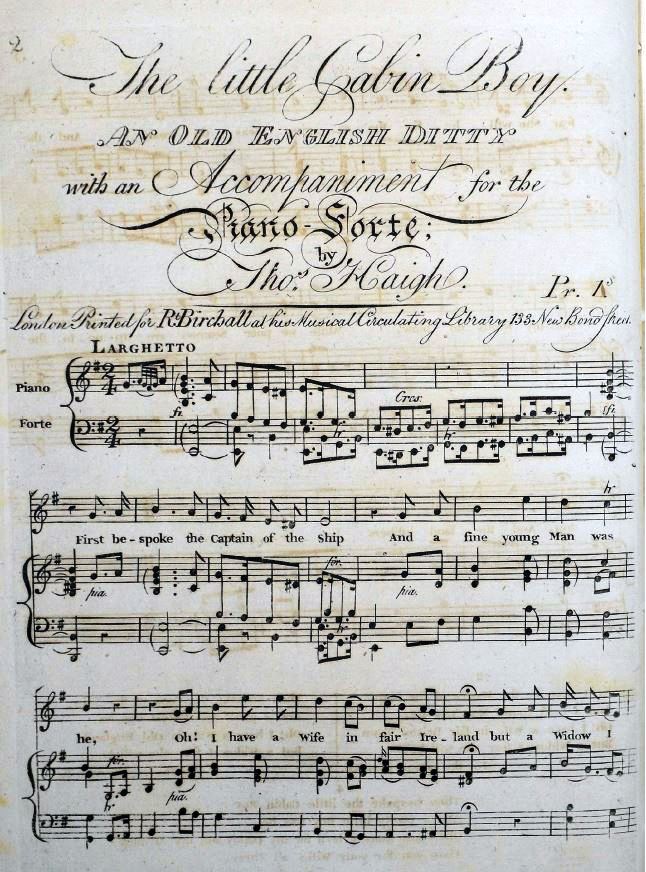 2
The little Cabin Boy.
AN OLD ENGLISH DITTY
with an Accompaniment for the
Piano-Forte;
by
Thos. Haigh.
Pr. 1s
London Printed for Rt. Birchall at his Musical Circulating Library 133 New Bond Street.
LARGHETTO
Piano
Forte
fz.
hr
Cres:
hr
sfz.
First be-spoke the Captain of the Ship And a fine young Man was
hr
pia.
for.
hr
pia.
he, Oh! I have a Wife in fair Ire-land but a Widow I
for.
hr
pia.